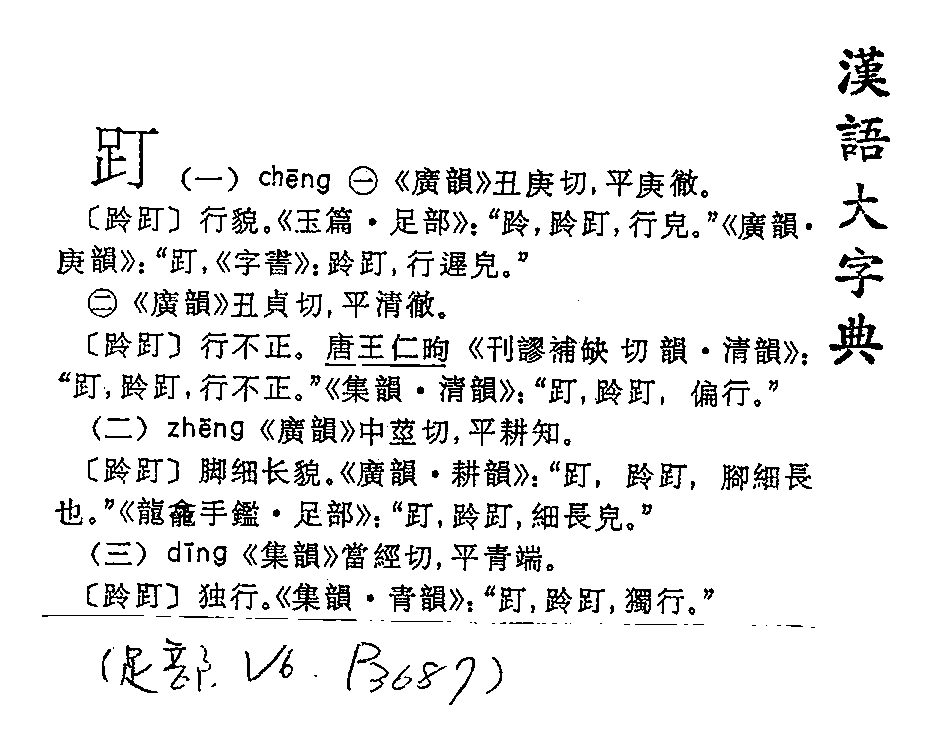 漢語大字典
𧿳 (一) chēng ㊀《廣韻》丑庚切,平庚徹。
〔跉𧿳〕行貌。《玉篇·足部》:“跉,跉𧿳,行皃。”《廣韻·
庚韻》:“𧿳,《字書》:跉𧿳,行遲皃。”
㊁《廣韻》丑貞切,平清徹。
〔跉𧿳〕行不正。唐王仁昫《刊謬補缺切韻·清韻》:
“𧿳,跉𧿳,行不正。”《集韻·清韻》:“𧿳,跉𧿳,偏行。”
(二) zhēng《廣韻》中莖切,平耕知。
〔跉𧿳〕脚细长貌。《廣韻·耕韻》:“𧿳,跉𧿳,腳細長
也。”《龍龕手鑑·足部》:“𧿳,跉𧿳,細長皃。”
(三) dīng《集韻》當經切,平青端。
〔跉𧿳〕独行。《集韻·青韻》:“𧿳,跉𧿳,獨行。”
(足部. V6. P3687)